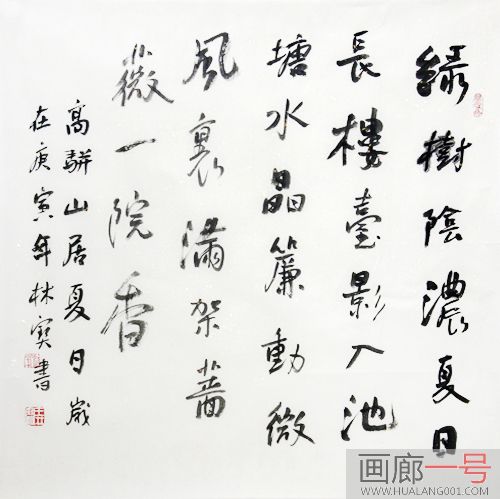 綠樹陰濃夏日
長樓臺影入池
塘水晶簾動微
風裏滿架薔
薇一院香
高駢山居夏日歲
在庚寅年林書
画廊一号
WWW.HUALANG001.COM